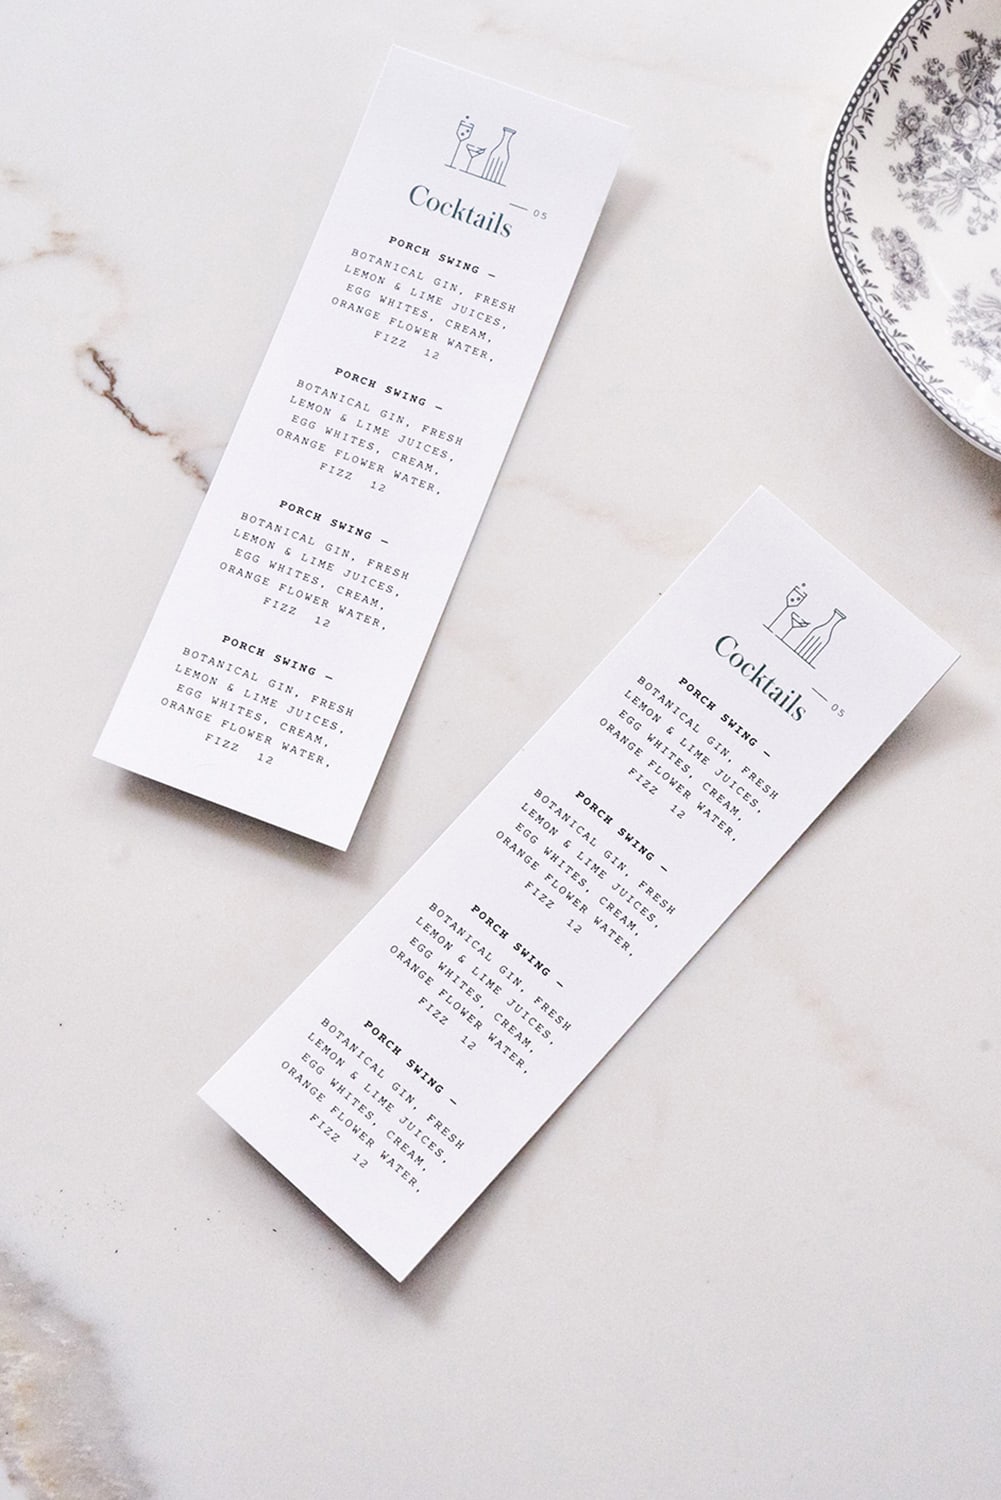 Cocktails — 05
PORCH SWING —
BOTANICAL GIN, FRESH
LEMON & LIME JUICES,
EGG WHITES, CREAM,
ORANGE FLOWER WATER,
FIZZ 12
PORCH SWING —
BOTANICAL GIN, FRESH
LEMON & LIME JUICES,
EGG WHITES, CREAM,
ORANGE FLOWER WATER,
FIZZ 12
PORCH SWING —
BOTANICAL GIN, FRESH
LEMON & LIME JUICES,
EGG WHITES, CREAM,
ORANGE FLOWER WATER,
FIZZ 12
PORCH SWING —
BOTANICAL GIN, FRESH
LEMON & LIME JUICES,
EGG WHITES, CREAM,
ORANGE FLOWER WATER,
FIZZ 12
Cocktails — 05
PORCH SWING —
BOTANICAL GIN, FRESH
LEMON & LIME JUICES,
EGG WHITES, CREAM,
ORANGE FLOWER WATER,
FIZZ 12
PORCH SWING —
BOTANICAL GIN, FRESH
LEMON & LIME JUICES,
EGG WHITES, CREAM,
ORANGE FLOWER WATER,
FIZZ 12
PORCH SWING —
BOTANICAL GIN, FRESH
LEMON & LIME JUICES,
EGG WHITES, CREAM,
ORANGE FLOWER WATER,
FIZZ 12
PORCH SWING —
BOTANICAL GIN, FRESH
LEMON & LIME JUICES,
EGG WHITES, CREAM,
ORANGE FLOWER WATER,
FIZZ 12